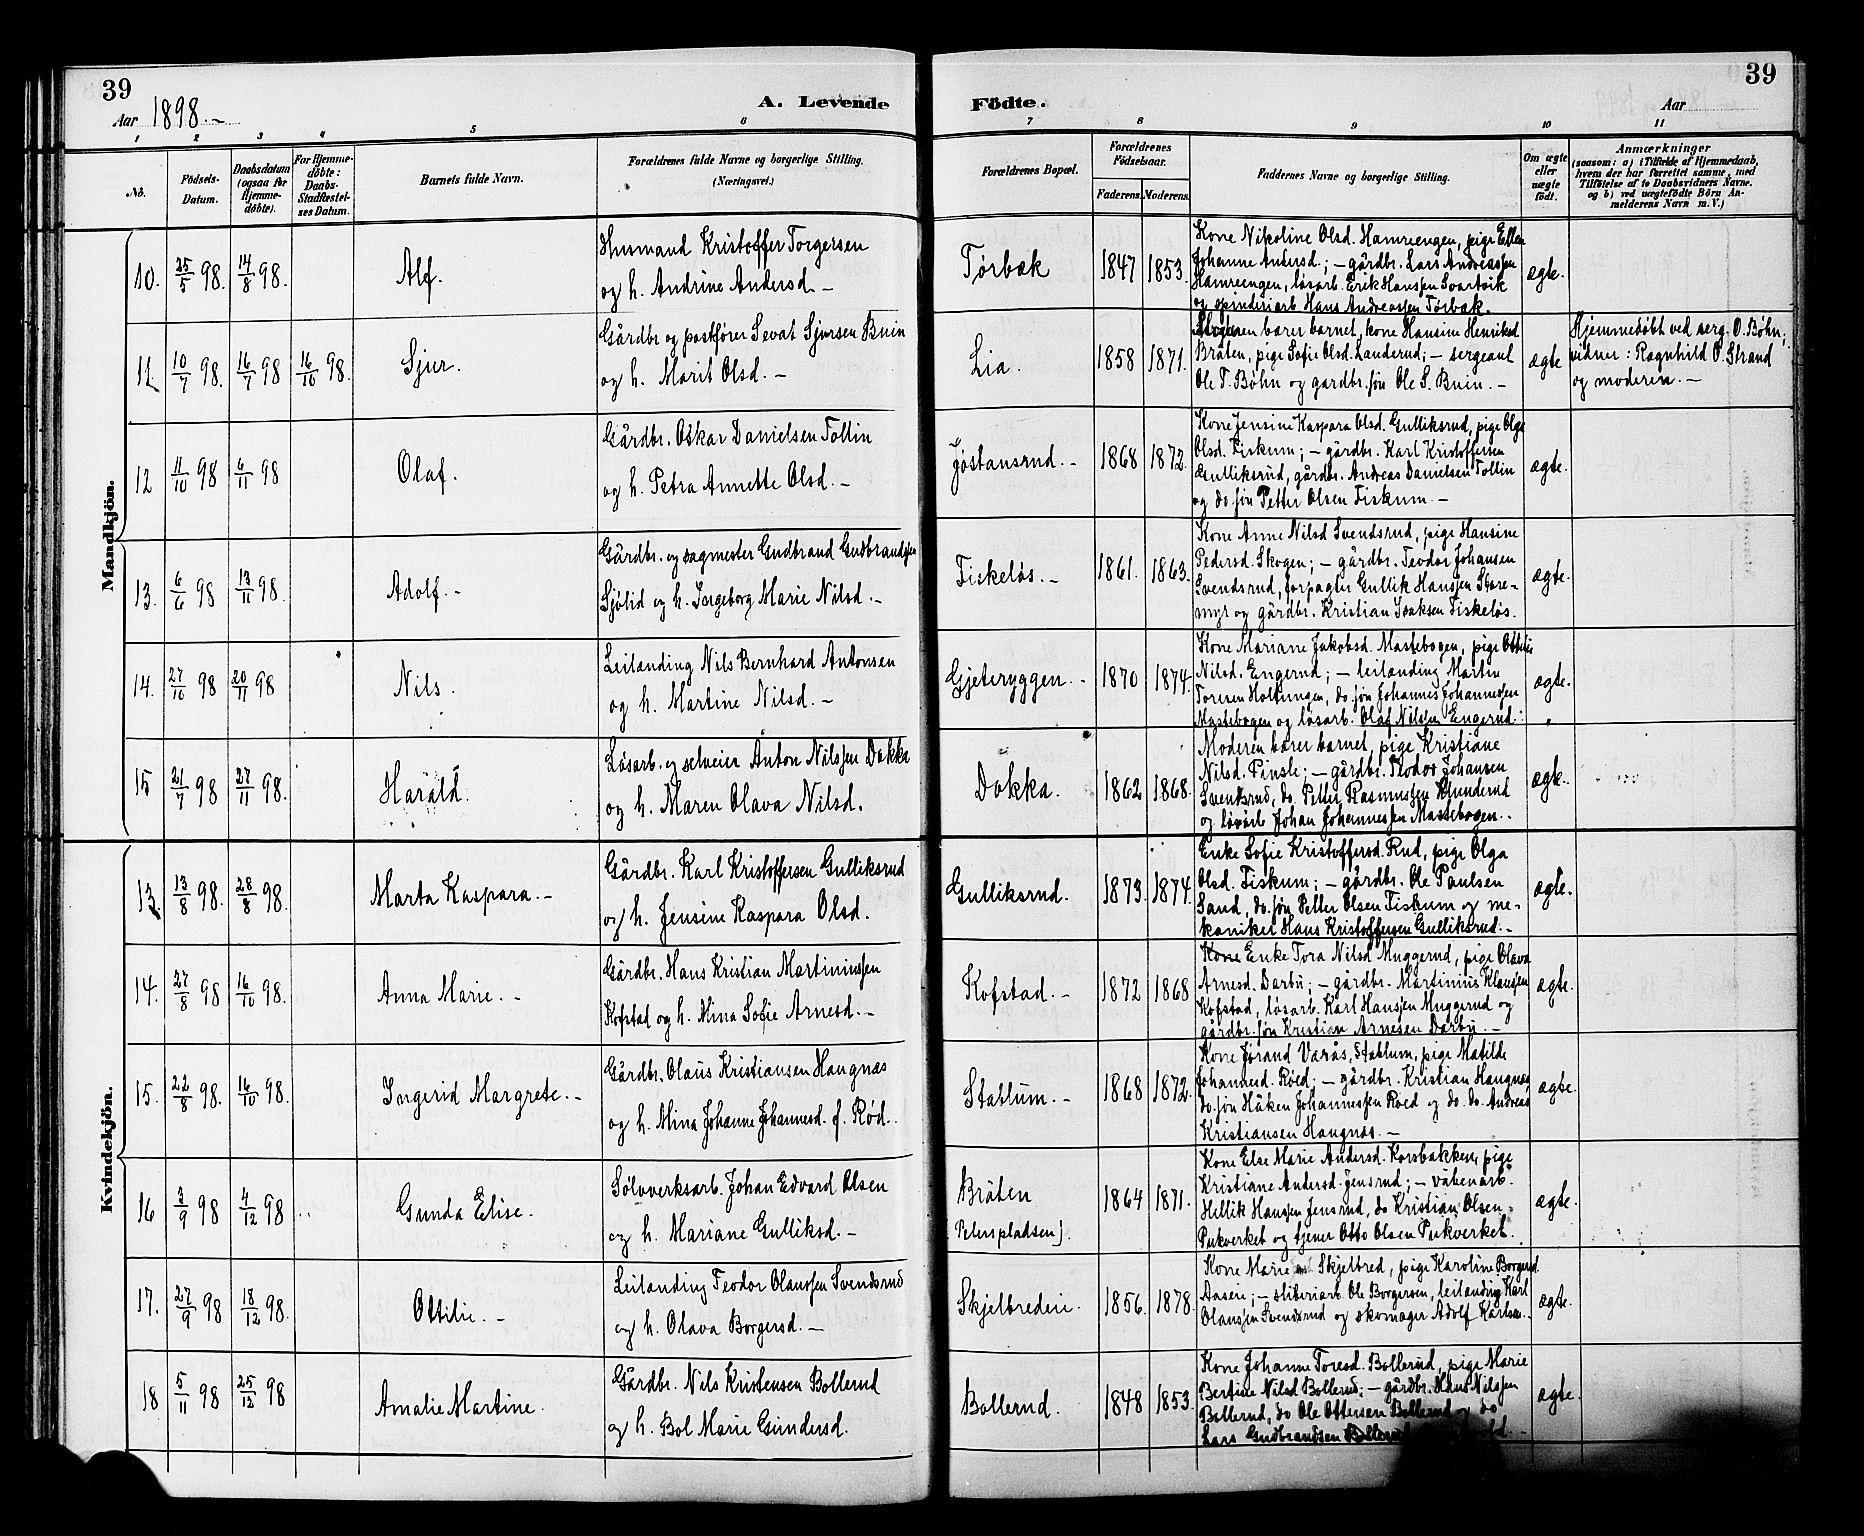 39
Aar 1898.–
A. Levende
Födte.
Aar
39
1 2 3 4 5 6 7 8 9 10 11
No.
Födsels-
Datum.
Daabsdatum
(ogsaa for
Hjemme-
döbte).
For Hjemme-
döbte:
Daabs-
Stadfæstel-
ses Datum.
Barnets fulde Navn.
Forældrenes fulde Navne og borgerlige Stilling.
(Næringsvei.)
Forældrenes Bopæl.
Forældrenes
Födselsaar.
Faderens.
Moderens.
Faddernes Navne og borgerlige Stilling.
Om ægte
eller
uægte
födt.
Anmærkninger
(saasom: a) i Tilfælde af Hjemmedaab,
hvem der har forrettet samme, med
Tilføielse af to Daabsvidners Navne.
og b) ved uægtefödte Börn An-
melderens Navn m. V.)
Mandkjön.
10. 25/5 98. 14/8 98. Alf.
Husmand Kristoffer Torgersen
og h. Andrine Andersd. –
Tørbæk 1847 1853.
Kone Nikoline Olsd. Hamreengen, pige Ellen
Johanne Andersd.; – gårdbr. Lars Andreassen
Hamreengen, løsarb. Erik Hanssen Svartvik
og spinderiarb. Hans Andreassen Tørbæk.
ægte.
11. 10/7 98. 16/7 98 16/10 98. Sjur.
Gårdbr. og postfører Sevat Sjursen Buin
og h. Marit Olsd. –
Lia. 1858 1871.
bærer barnet, kone Hansine Henriksd
Bråten, pige Sofie Olsd. Landerud; – sergeant
Ole T. Bøhn og gardbr. søn Ole S. Buin. –
ægte
Hjemmedøbt ved serg. O. Bøhn;
vidner: Ragnhild O. Strand
og moderen. –
12 11/10 98 6/11 98 Olaf.
Gårdbr. Oskar Danielsen Tollin
og h. Petra Annette Olsd. –
Jøstansrud. – 1868 1872.
Kone Jensine Kaspara Olsd. Gulliksrud, pige Olga
Olsd. Fiskum; – gårdbr. Karl Kristoffersen
Gulliksrud, gårdbr. Andreas Danielsen Tollin
og do. søn Petter Olsen Fiskum –
ægte.
13. 6/6 98 13/11 98. Adolf. –
Gårdbr. og sagmester Gudbrand Gudbrandsen
Sjølid og h. Ingeborg Marie Nilsd. –
Fiskeløs. – 1861. 1863.
Kone Anne Nilsd Svendsrud, pige Hansine
Pedersd. Skogen; – gårdbr. Teodor Johansen
Svendsrud, forpagter Gullik Hanssen Store-
myr og gårdbr. Kristian Isaksen Fiskeløs.
ægte.
14. 27/10 98 20/11 98 Nils.
Leilanding Nils Bernhard Antonsen
og h. Martine Nilsd. –
Gjeteryggen. – 1870 1874.
Kone Mariane Jakobsd. Mastebogen, pige Ottilie
Nilsd. Engerud; – leilanding Martin
Toresen Holtungen, do. søn Johannes Johannessen
Mastebogen og løsarb. Olaf Nilsen Engerud.
ægte.
15 21/7 98 27/11 98. Harald.
Løsarb. og selveier Anton Nilssen Dokka
og h. Maren Olava Nilsd.
Dokka. 1862 1868.
Moderen bærer barnet, pige Kristiane
Nilsd. Pinsle; – gårdbr. Teodor Johansen
Svendsrud, do. Petter Rasmussen
og løsarb Johan Johannessen Mastebogen. –
ægte.
Kvindekjön.
13. 13/8 98. 28/8 98. Marta Kaspara. –
Gårdbr. Karl Kristoffersen Gulliksrud
og h. Jensine Kaspara Olsd.
Gulliksrud. 1873. 1874.
Enke Sofie Kristoffersd. Rud, pige Olga
Olsd. Fiskum; – gårdbr. Ole Paulsen
Sand, do. søn Petter Olsen Fiskum og me-
kaniker Hans Kristoffersen Gulliksrud. –
ægte.
14. 27/8 98 16/10 98. Anna Marie. –
Gårdbr. Hans Kristian Martiniussen
Kofstad og h. Mina Sofie Arnesd. –
Kofstad. – 1872 1868
Kone Enke Tora Nilsd Muggerud, pige Olava
Arnesd. Darbu; – gårdbr. Martinius Klaussen
Kofstad, løsarb. Karl Hanssen Muggerud og
gårdbr. søn Kristian Arnesen Darbu. –
ægte.
15. 22/8 98. 16/10 98. Ingerid Margrete. –
Gårdbr. Olaus Kristiansen Haugnæs
og h. Mina Johanne Johannesd. f. Røed.
Stablum. – 1868 1872.
Kone Jørand Varås, Stablum, pige Matilde
Johannesd. Røed; – gårdbr. Kristian Haugnæs
do. søn Håken Johannessen Roed og do. do. Andreas
Kristiansen Haugnæs. –
ægte.
16 3/9 98 4/12 98 Gunda Elise.
Sølvverksarb. Johan Edvard Olsen
og h. Mariane Gulliksd. –
Bråten
Peterspladsen). 1864 1871.
Kone Else Marie Andersd. Korsbakken, pige
Kristiane Andersd. Jensrud; – våbenarb.
Hellik Hanssen Jensrud, do Kristian Olsen
Pukverket og tjener Otto Olsen Pukverket.
ægte.
17. 27/9 98 18/12 98. Ottilie. –
Leilanding Teodor Olaussen Svendsrud
og h. Olava Borgersd. –
Skjelbredeie. 1856. 1878.
Kone Marie Skjelbred, pige Karoline Borgersd.
Aaseie; – sliberiarb. Ole Borgersen, leilanding Karl
Olaussen Svendsrud og skomager Adolf Karlsen. –
ægte.
18 5/11 98 25/12 98 Amalie Martine.
Gårdbr. Nils Kristensen Bollerud
og h. Bol Marie Gundersd.
Bollerud. 1848 1853.
Kone Johanne Toresd. Bollerud, pige Marie
Bertine Nilsd Bollerud; – gårdbr. Hans Nilssen
Bollerud, do Ole Ottersen Bollerud og do
Lars Gudbrandsen Bollerud
ægte.